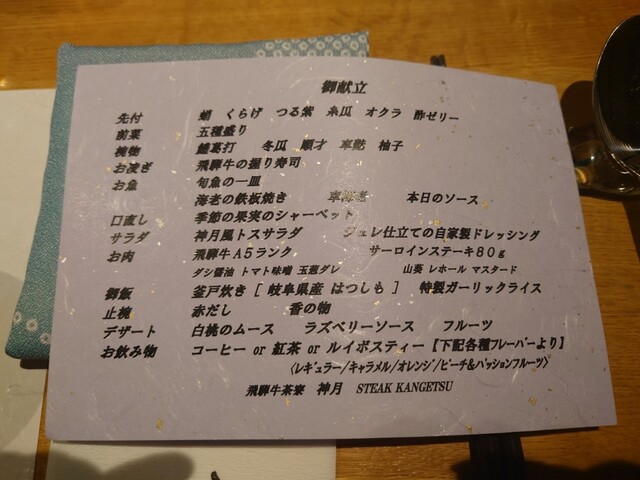 御献立
先付 蛸 くらげ つる紫 糸瓜 オクラ 酢ゼリー
前菜 五種盛り
椀物 鱧葛打 冬瓜 順才 車麩 柚子
お凌ぎ 飛騨牛の握り寿司
お魚 旬魚の一皿
海老の鉄板焼き 車海老 本日のソース
口直し 季節の果実のシャーベット
サラダ 神月風トスサラダ ジュレ仕立ての自家製ドレッシング
お肉 飛騨牛A5ランク サーロインステーキ80g
ダシ醤油 トマト味噌 玉葱ダレ 山葵 レホール マスタード
御飯 釜戸炊き [ 岐阜県産 はつしも ] 特製ガーリックライス
止椀 赤だし 香の物
デザート 白桃のムース ラズベリーソース フルーツ
お飲み物 コーヒー or 紅茶 or ルイボスティー【下記各種フレーバーより】
〈レギュラー/キャラメル/オレンジ/ピーチ&パッションフルーツ〉
飛騨牛茶寮 神月 STEAK KANGETSU